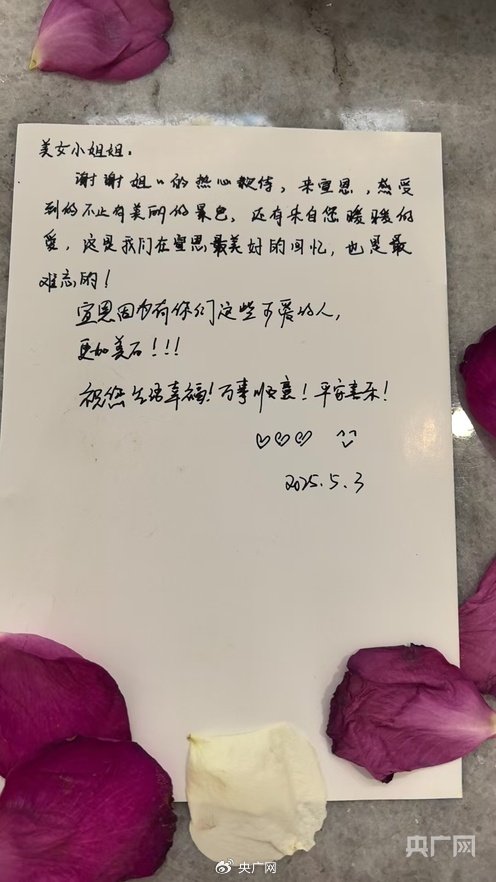 美女小姐姐：
谢谢姐〃的热心款待，来宣恩，感受
到的不止有美丽的景色，还有来自您暖暖的
爱，这是我们在宣恩最美好的回忆，也是最
难忘的！
宣恩因为有你们这些可爱的人，
更加美好！！！
祝您生活幸福！万事顺意！平安喜乐！
2025.5.3
央广网
央广网